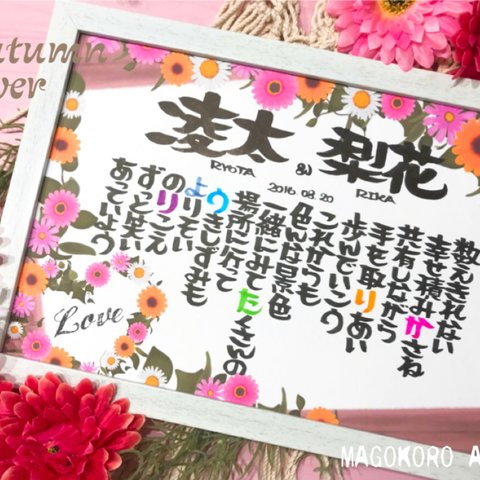 utumn
ver
凌太 & 梨花
RYOTA RIKA
2016 08.20
数えきれない
幸せ積みかさね
共有しながら
手を取りあい
歩んでいこう
これからも
色んな景色
一緒にみてたくさんの
場所に行って
うきしずみも
よりそい
のりこえ
ずっと笑い
あっていよう
Love
MAGOKORO A